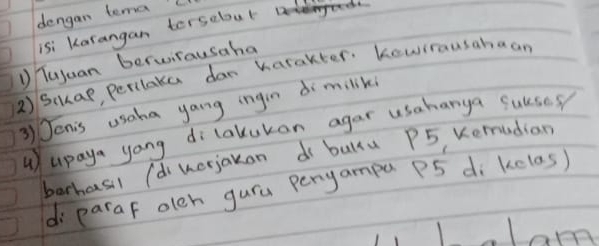 dengan tema
isi karangan tersebut
1) Tujuan berwirausaha
2) Sikap, perilaku dan karakter kewirausahaan
3) Jenis usaha yang ingin dimiliki
4) upaya yang dilakukan agar usahanya sukses/
berhasil (di kerjakan di buku P5, kemudian
di paraf oleh guru penyampu P5 di kelas)